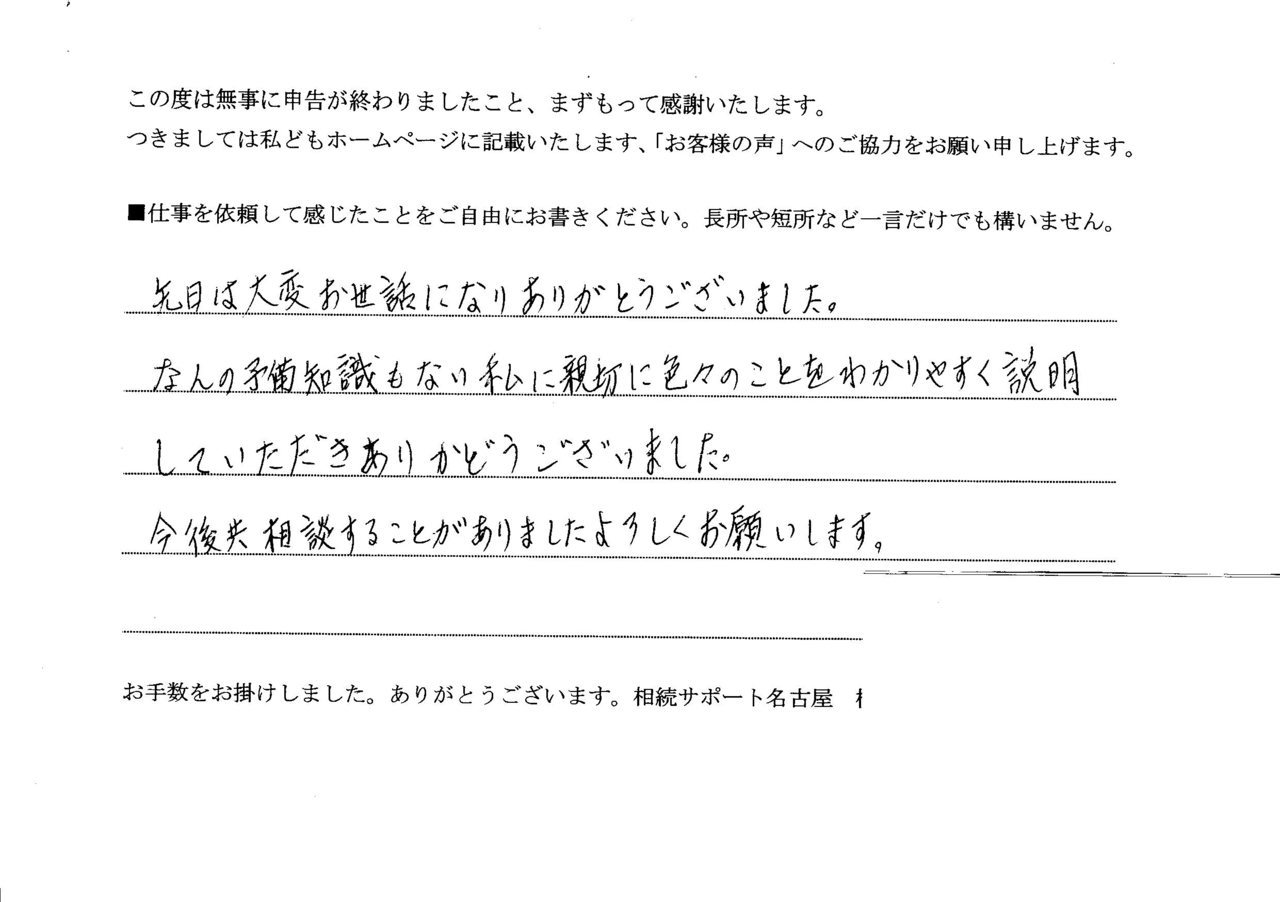 この度は無事に申告が終わりましたこと、まずもって感謝いたします。
つきましては私どもホームページに記載いたします、「お客様の声」へのご協力をお願い申し上げます。
■仕事を依頼して感じたことをご自由にお書きください。長所や短所など一言だけでも構いません。
先日は大変お世話になりありがとうございました。
なんの予備知識もない私に親切に色々のことをわかりやすく説明
していただきありがどうございました。
今後共相談することがありましたよろしくお願いします。
お手数をお掛けしました。ありがとうございます。相続サポート名古屋